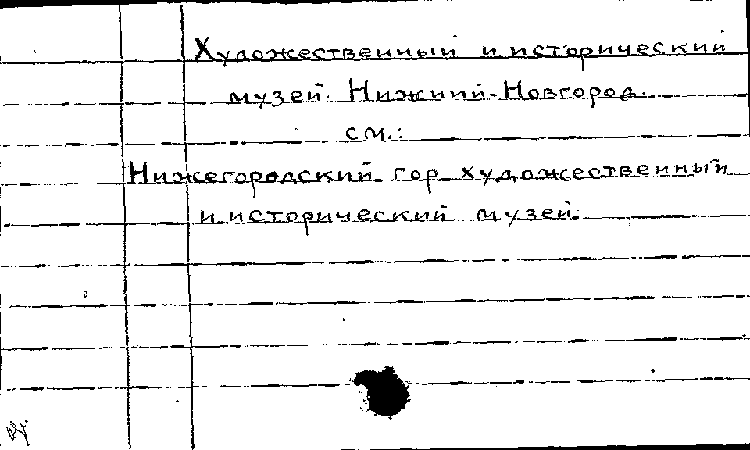 Художественный и исторический
музей. Нижний-Новгород.
см.:
Нижегородский гор. художественный
и исторический музей.